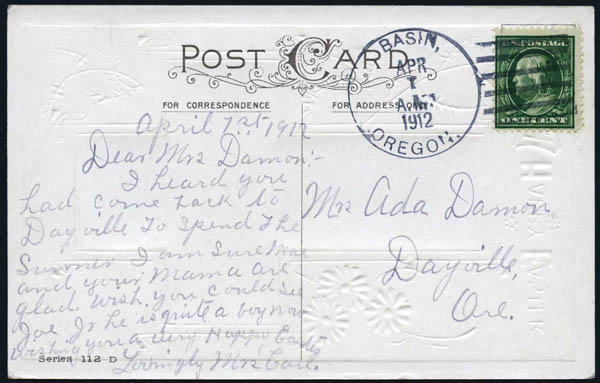 POST CARD
FOR CORRESPONDENCE
FOR ADDRESS ONLY
BASIN,
APR
1
A.M.
1912
OREGON.
U.S. POSTAGE
ONE CENT
April 1st 1912
Dear Mrs Damon:-
I heard you
had come back to
Dayville to spend the
Summer I am sure
and your Mama are
glad. Wish you could see
Joe Jr he is quite a boy now
Wishing you a very Happy Easter
Lovingly Mrs
Mrs Ada Damon,
Dayville,
Ore.
Series 112 D